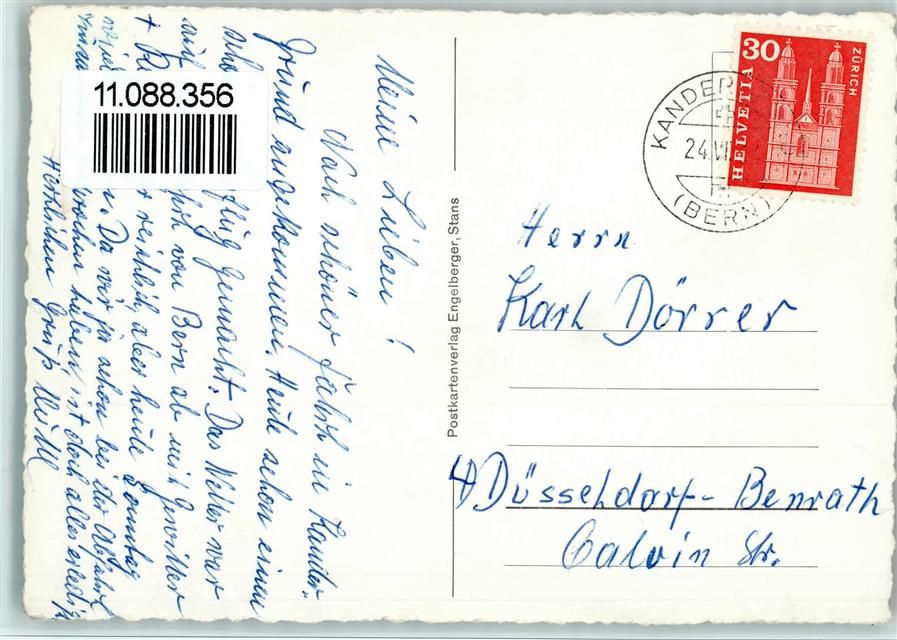 11.088.356
Meine Lieben!
Nach schöner Fahrt in Kander-
grund angekommen. Heute schon einen
flug gemacht. Das Wetter war
von Bern ab mit Gewitter
reichlich, aber heute Sonntag
Da wir ja schon bei der Abfahrt
haben, ist doch alles erledigt
Herzlichen Gruß Willi
Postkartenverlag Engelberger, Stans
30
HELVETIA
ZÜRICH
KANDER
24.VI
(BERN)
Herrn
Karl Dörrer
4) Düsseldorf-Benrath
Calvin Str.